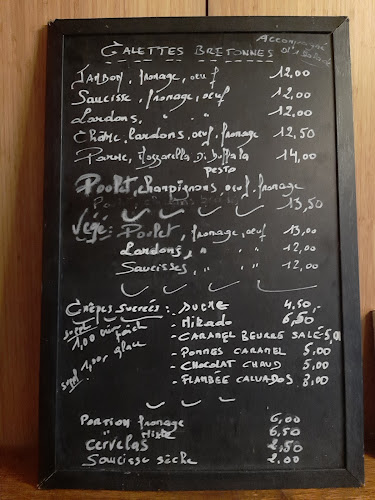 GALETTES BRETONNES Accompagné d'1 Salade
Jambon, fromage, oeuf 12,00
Saucisse, fromage, oeuf 12,00
Lardons, " " 12,00
Chèvre, lardons, oeuf, fromage 12,50
Parme, Mozzarella Di Buffala 14,00
PESTO
Poulet, champignons, oeuf, fromage
13,50
Végé: Poulet, fromage, oeuf 13,00
Lardons, " " 12,00
Saucisses, " " 12,00
Crêpes Sucrés: - SUCRE 4,50.-
- Mikado 6,50
suppl 1,00 - CARAMEL BEURRE SALÉ - 5,00
- POMMES CARAMEL 5,00
suppl 1,00 glace - CHOCOLAT CHAUD 5,00
- FLAMBÉE CALVADOS 8,00
PORTION fromage 6,00
" Mixte 6,50
cervelas 2,50
Saucisse sèche 2,00